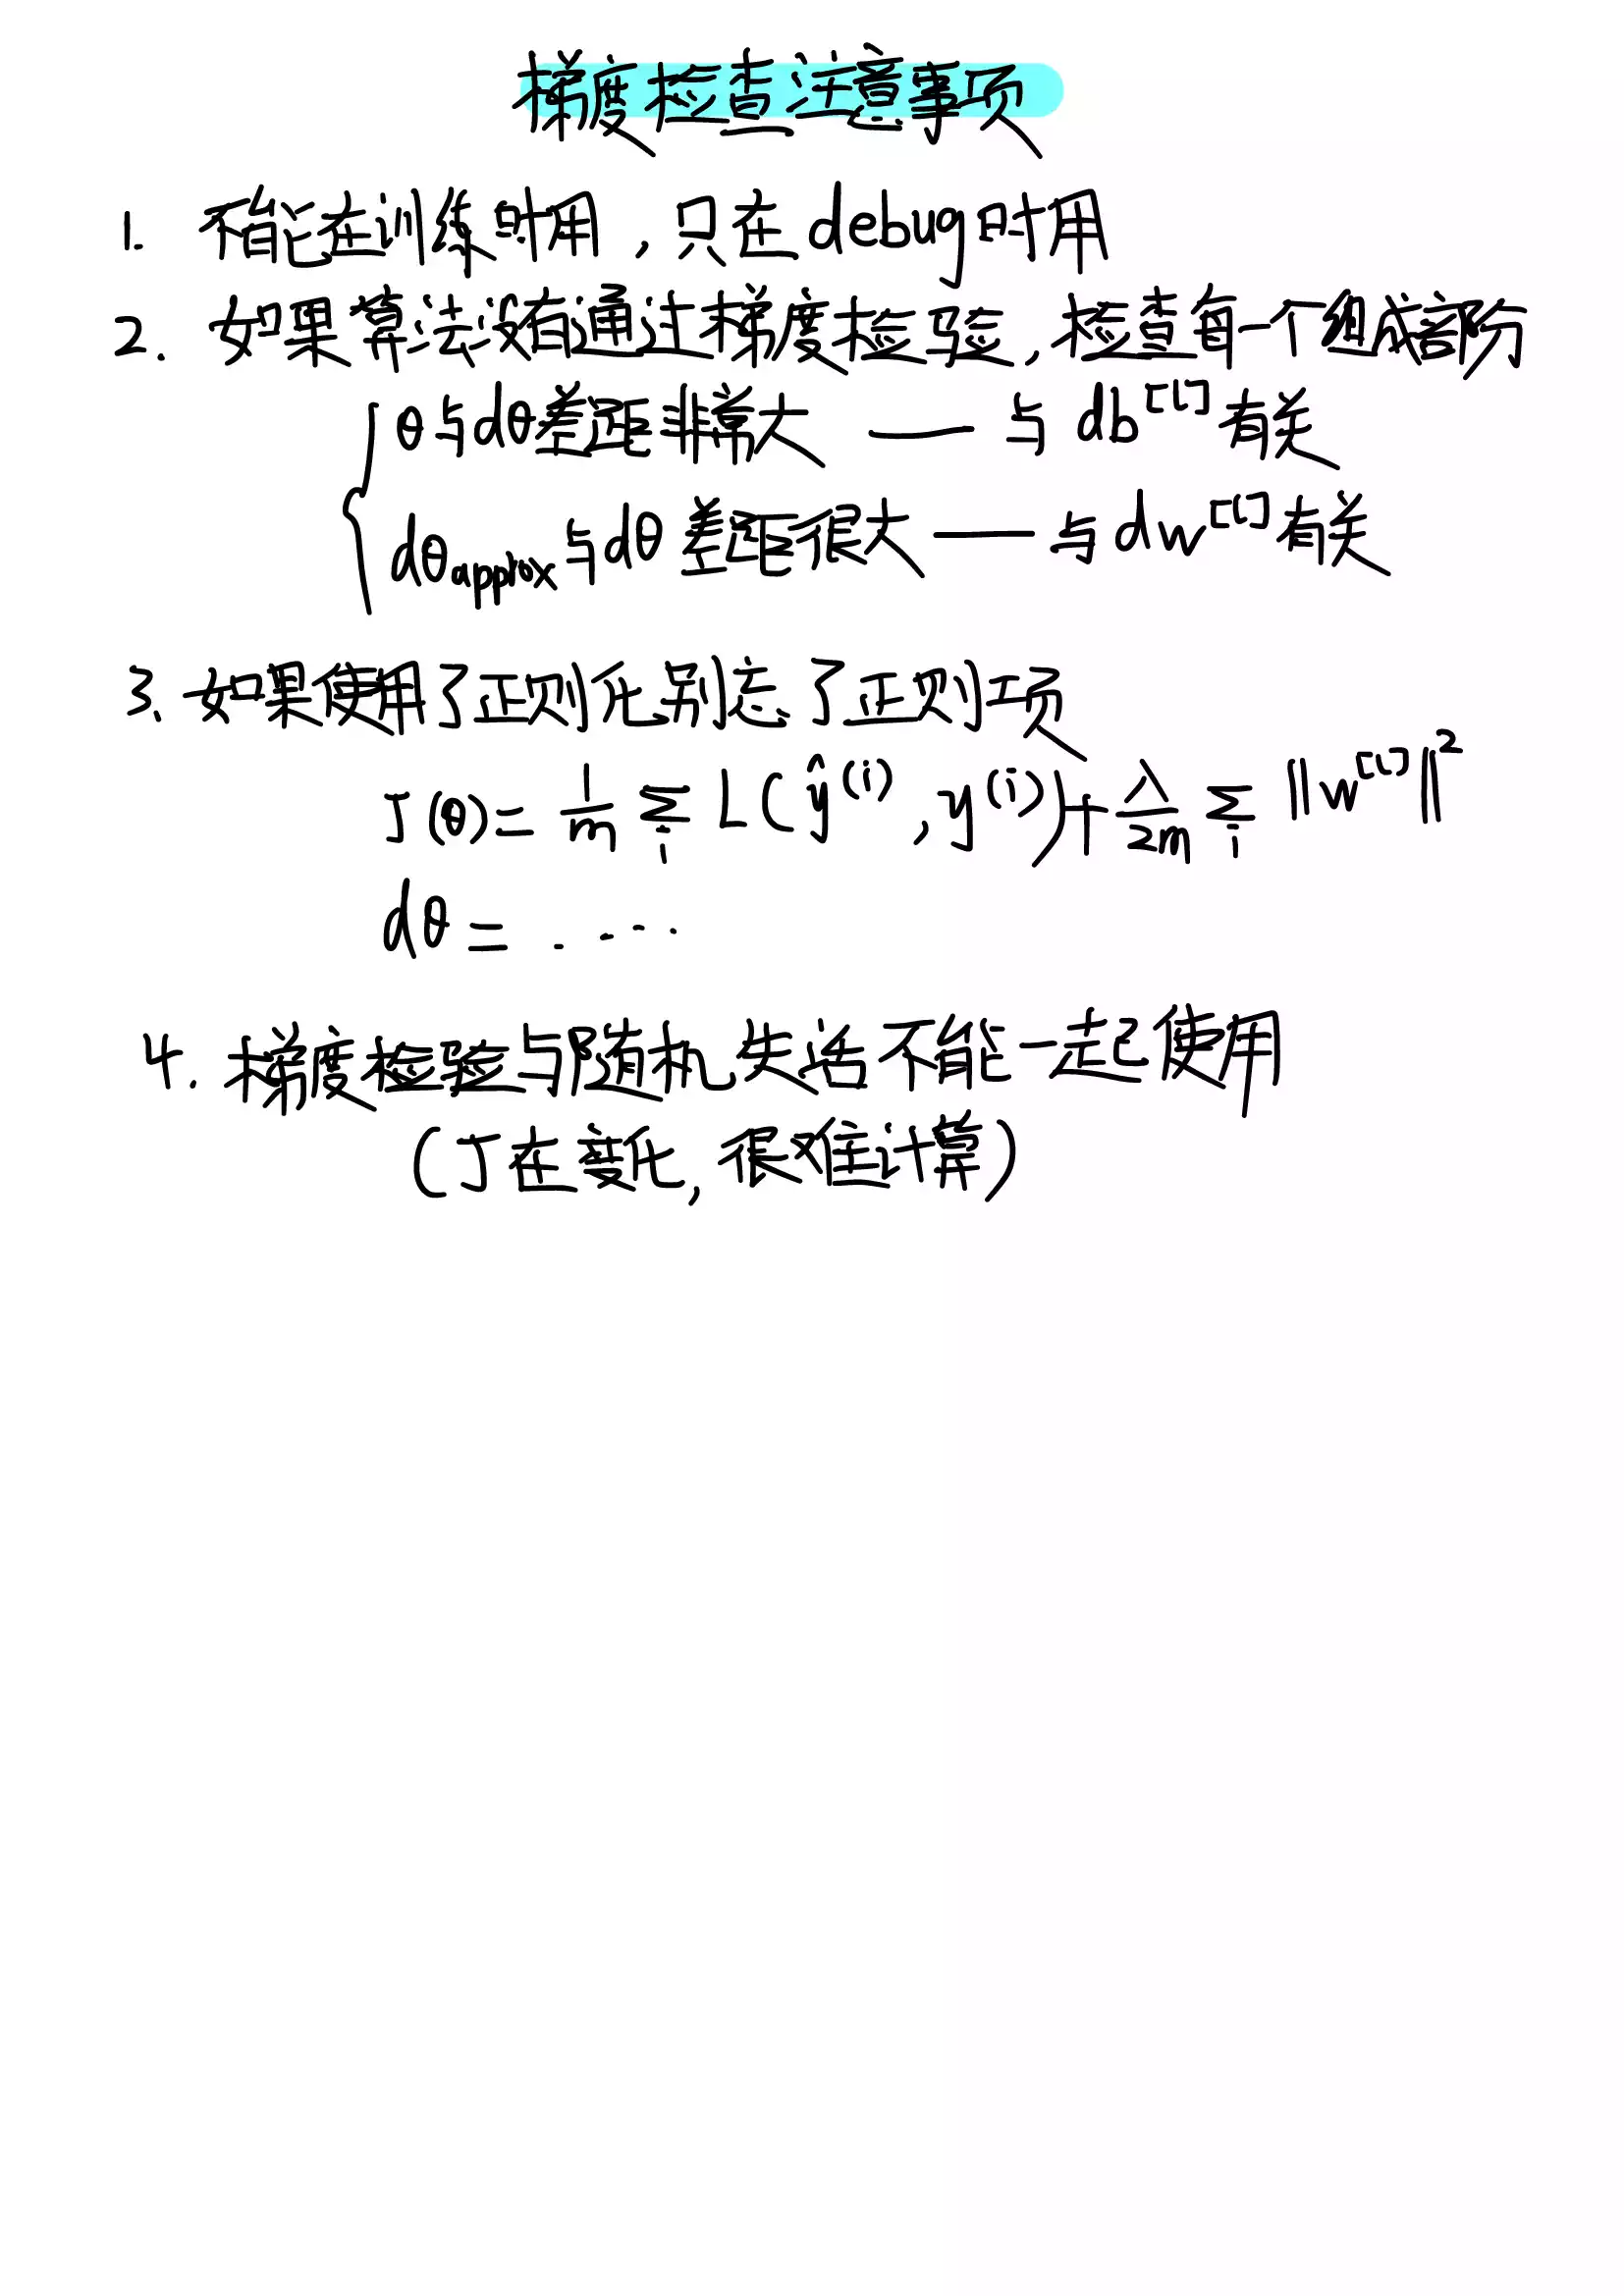 梯度检查注意事项
1. 不能在训练时用,只在debug时用
2. 如果算法没有通过梯度检验,检查每一个组成部分
θ与dθ差距非常大 —— 与 db^[l] 有关
dθapprox与dθ差距很大 —— 与dw^[l]有关
3、如果使用了正则化别忘了正则项
J(θ)= 1/m Σ_i L(ŷ^(i), y^(i)) + λ/2m Σ_i ||w^[l]||²
dθ = ....
4. 梯度检验与随机失活不能一起使用
(J在变化, 很难计算)